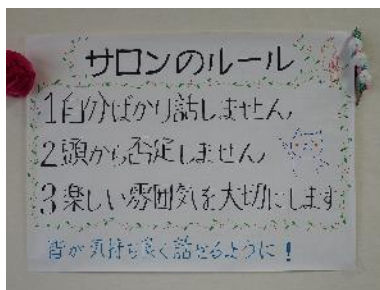 サロンのルール
1自分ばかり話しません
2頭から否定しません
3楽しい雰囲気を大切にします
皆が気持ち良く話せるように!